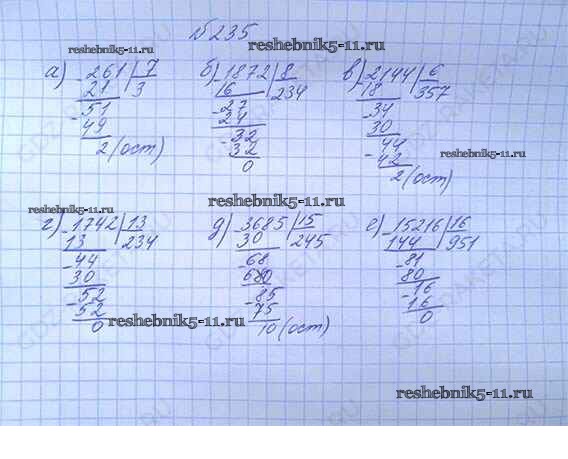 №235
reshebnik5-11.ru
reshebnik5-11.ru
а) 261 | 7
21 | 3
- 51
49
2 (ост)
б) - 1872 | 8
16 | 234
- 27
24
- 32
32
0
в) 2144 | 6
- 18 | 357
- 34
30
- 44
42
2 (ост)
reshebnik5-11.ru
reshebnik5-11.ru
reshebnik5-11.ru
г) - 1742 | 13
13 | 234
- 44
30
- 52
52
0
reshebnik5-11.ru
д) - 3685 | 15
30 | 245
68
- 680
- 85
75
10 (ост)
е) - 15216 | 16
144 | 951
- 81
80
- 16
16
0
reshebnik5-11.ru